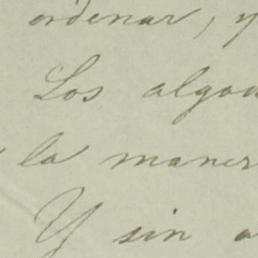 ordenar, y
Los algod
la maner
Y sin a